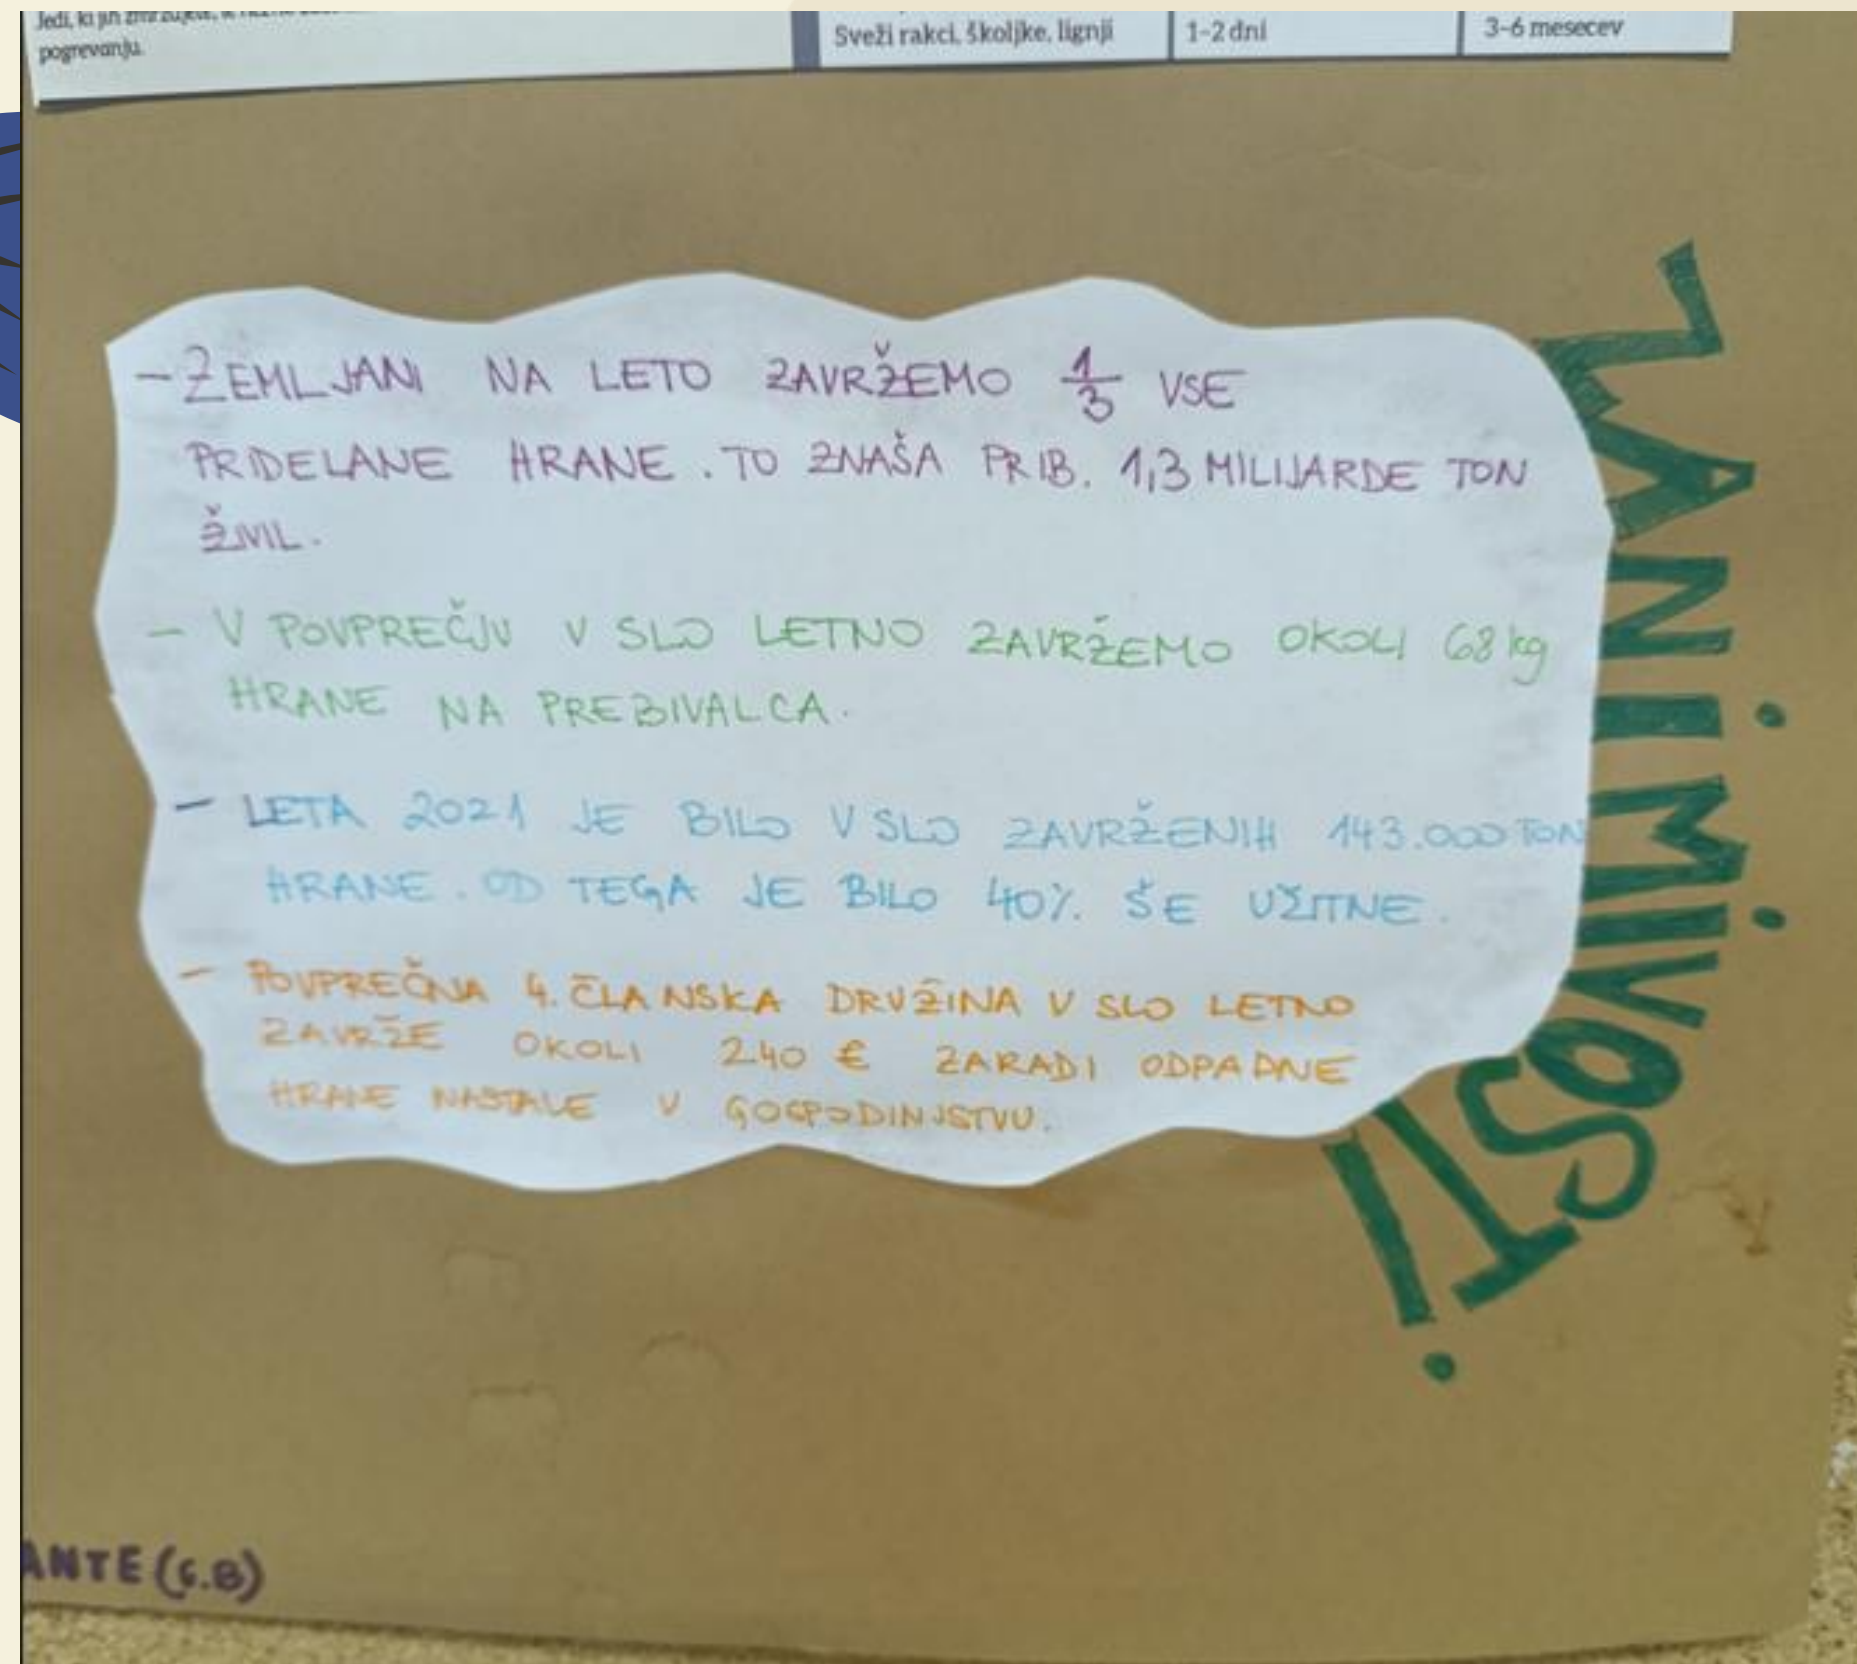 Jedi, ki jih zmrzujete, le
pogrevanju.
Sveži rakci, školjke, lignji
1-2 dni
3-6 mesecev
ZANIMIVOSTI
- ZEMLJANI NA LETO ZAVRŽEMO 1/3 VSE
PRIDELANE HRANE. TO ZNAŠA PRIB. 1,3 MILIJARDE TON
ŽIVIL.
- V POVPREČJU V SLO LETNO ZAVRŽEMO OKOLI 68 kg
HRANE NA PREBIVALCA.
- LETA 2021 JE BILO V SLO ZAVRŽENIH 143.000 TON
HRANE. OD TEGA JE BILO 40% ŠE UŽITNE.
- POVPREČNA 4. ČLANSKA DRUŽINA V SLO LETNO
ZAVRŽE OKOLI 240 € ZARADI ODPADNE
HRANE NASTALE V GOSPODINJSTVU.
ANTE (6.B)